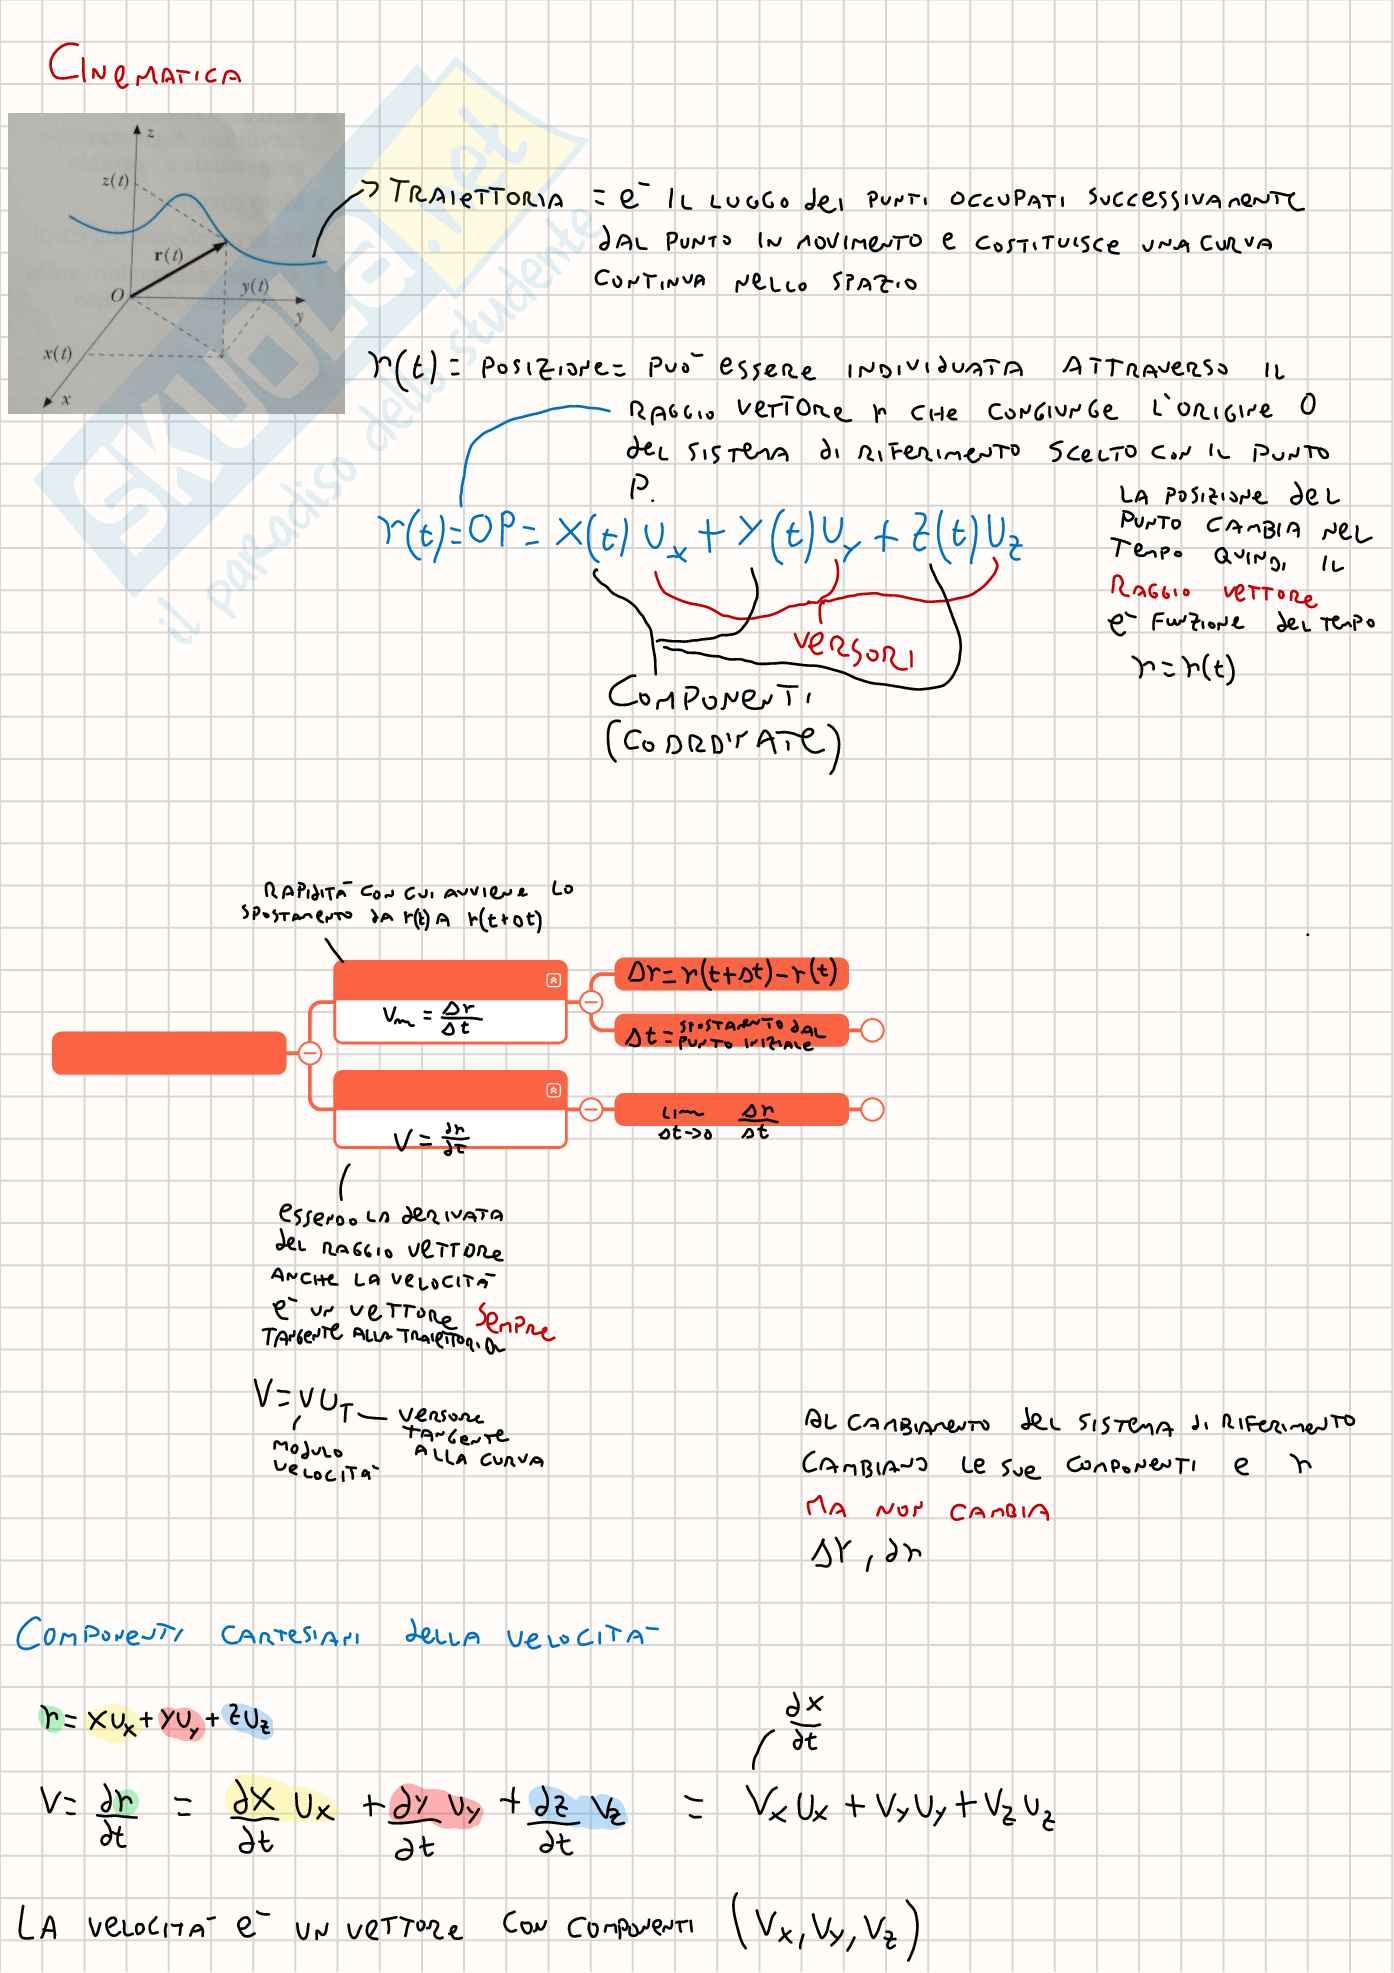 CINEMATICA
z
z(t)
r(t)
O
y(t)
y
x(t)
x
SKUOLA.net
il paradiso dello studente
TRAIETTORIA = e‾ IL LUOGO dei PUNTI OCCUPATI SUCCESSIVAMENTE
DAL PUNTO IN MOVIMENTO e COSTITUISCE UNA CURVA
CONTINUA NELLO SPAZIO
r(t) = POSIZIONE = PUO‾ ESSERE INDIVIDUATA ATTRAVERSO IL
RAGGIO VETTORE r CHE CONGIUNGE L'ORIGINE O
del SISTEMA di RIFERIMENTO SCELTO CON IL PUNTO
P.
r(t)=OP= X(t) Ux + Y(t)Uy + Z(t)Uz
VERSORI
COMPONENTI
(COORDINATE)
LA POSIZIONE del
PUNTO CAMBIA NEL
TEMPO QUINDI IL
RAGGIO VETTORE
e‾ FUNZIONE del TEMPO
r=r(t)
RAPIDITA‾ CON CUI AVVIENE LO
SPOSTAMENTO DA r(t) A r(t+Δt)
Vm = Δr/Δt
Δr=r(t+Δt)-r(t)
Δt= SPOSTAMENTO DAL
PUNTO INIZIALE
V = dr/dt
lim Δt->0 Δr/Δt
ESSENDO LA DERIVATA
del RAGGIO VETTORE
ANCHE LA VELOCITA‾
e‾ UN VETTORE SEMPRE
TANGENTE ALLA TRAIETTORIA
V=VUT
VERSORE
TANGENTE
ALLA CURVA
MODULO
VELOCITA‾
AL CAMBIAMENTO del SISTEMA di RIFERIMENTO
CAMBIANO Le SUE COMPONENTI e r
MA NON CAMBIA
Δr, dr
COMPONENTI CARTESIANI DELLA VELOCITA‾
r= XUx + YUy + ZUz
dx/dt
V= dr/dt = dX/dt Ux + dy/dt Uy + dz/dt Vz = VxUx + VyUy + VzUz
LA VELOCITA‾ e‾ UN VETTORE CON COMPONENTI (Vx, Vy, Vz)